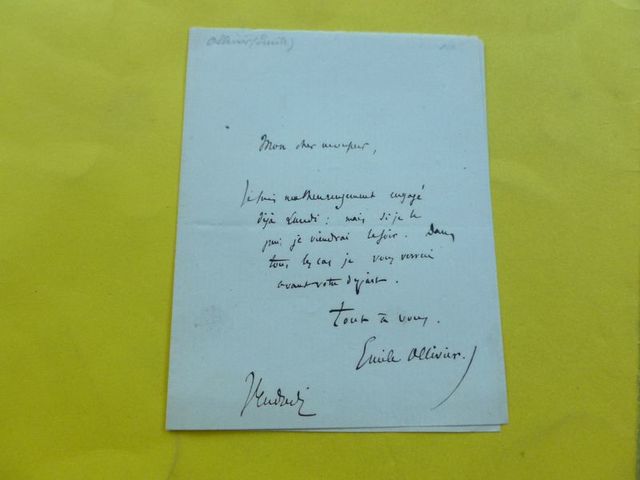 Ollivier (Emile)
Mon cher monsieur,
Je suis malheureusement engagé
déjà Lundi : mais si je le
puis je viendrai le soir. Dans
tous les cas je vous verrai
avant votre départ.
tout à vous.
Emile Ollivier
Vendredi